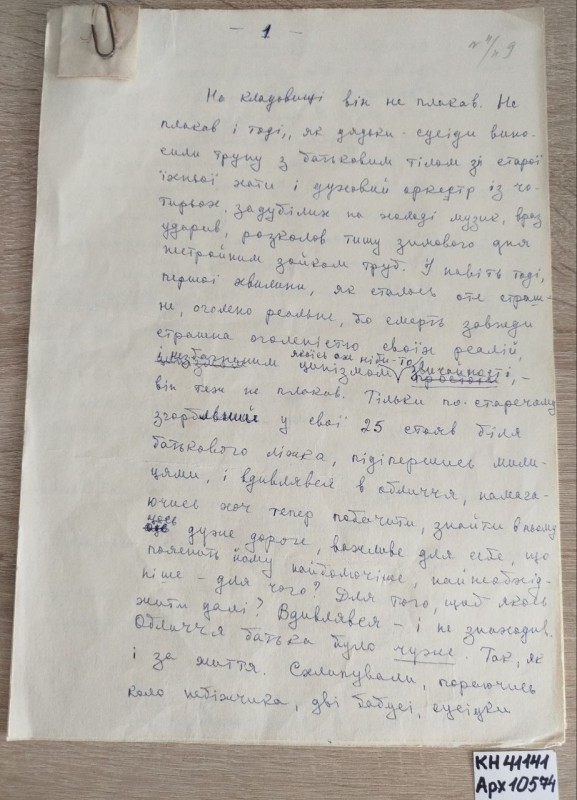 — 1 —
На кладовищі він не плакав. Не
плакав і тоді, як дядьки-сусіди вино-
сили труну з батьковим тілом зі старої
їхньої хати і духовий оркестр із чо-
тирьох, задубілих на холоді музик, враз
ударив, розколов тишу зимового дня
нестройним зойком труб. І навіть тоді,
першої хвилини, як сталось оте страш-
не, оголено реальне, бо смерть завжди
страшна оголеністю своїх реалій,
якоїсь аж ніби-то
цинізмом звичайності, –
він теж не плакав. Тільки по-старечому
згорблений у свої 25 стояв біля
батькового ліжка, підіпершись мили-
цями, і вдивлявся в обличчя, намага-
ючись хоч тепер побачити, знайти в ньому
щось
дуже дороге, важливе для себе, що
пояснить йому найболючіше, найнеобхід-
ніше – для чого? Для того, щоб якось
жити далі? Вдивлявся – і не знаходив.
Обличчя батька було чуже. Так, як
і за життя. Схлипували, пораючись
коло небіжчика, дві бабусі, сусідки
КН 41141
Арх 10574